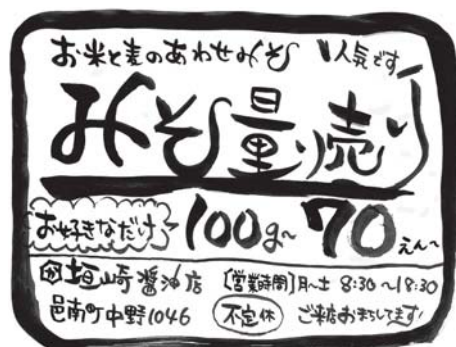 お米と麦のあわせみそ 人気です
みそ量り売り
お好きなだけ 100g〜 70えん〜
垣崎醤油店 [営業時間]月〜土 8:30〜18:30
邑南町中野1046 不定休 ご来店おまちしてます!